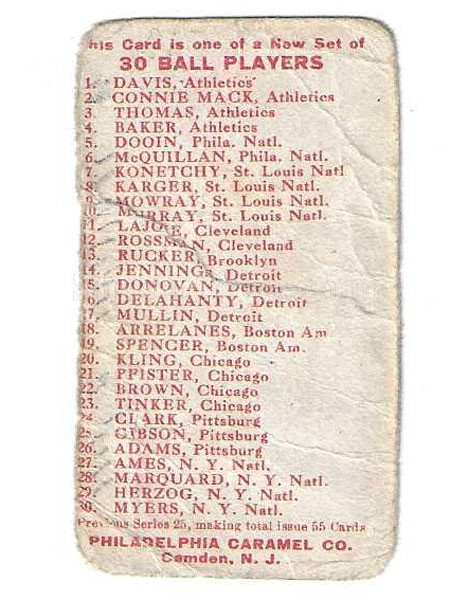 his Card is one of a New Set of
30 BALL PLAYERS
1. DAVIS, Athletics
2. CONNIE MACK, Athletics
3. THOMAS, Athletics
4. BAKER, Athletics
5. DOOIN, Phila. Natl.
6. McQUILLAN, Phila. Natl.
7. KONETCHY, St. Louis Natl
8. KARGER, St. Louis Natl.
9. MOWRAY, St. Louis Natl.
10. MURRAY, St. Louis Natl.
11. LAJOIE, Cleveland
12. ROSSMAN, Cleveland
13. RUCKER, Brooklyn
14. JENNINGS, Detroit
15. DONOVAN, Detroit
16. DELAHANTY, Detroit
17. MULLIN, Detroit
18. ARRELANES, Boston Am
19. SPENCER, Boston Am.
20. KLING, Chicago
21. PFISTER, Chicago
22. BROWN, Chicago
23. TINKER, Chicago
24. CLARK, Pittsburg
25. GIBSON, Pittsburg
26. ADAMS, Pittsburg
27. AMES, N. Y. Natl.
28. MARQUARD, N. Y. Natl.
29. HERZOG, N. Y. Natl.
30. MYERS, N. Y. Natl.
Previous Series 25, making total issue 55 Cards
PHILADELPHIA CARAMEL CO.
Camden, N. J.